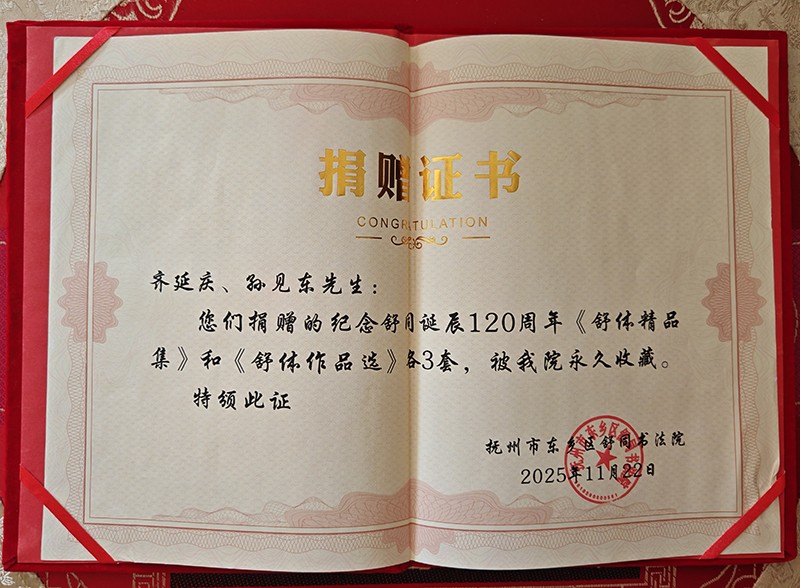 捐赠证书
CONGRATULATION
齐延庆、孙见东先生：
您们捐赠的纪念舒同诞辰120周年《舒体精品
集》和《舒体作品选》各3套，被我院永久收藏。
特颁此证
抚州市东乡区舒同书法院
2025年11月22日